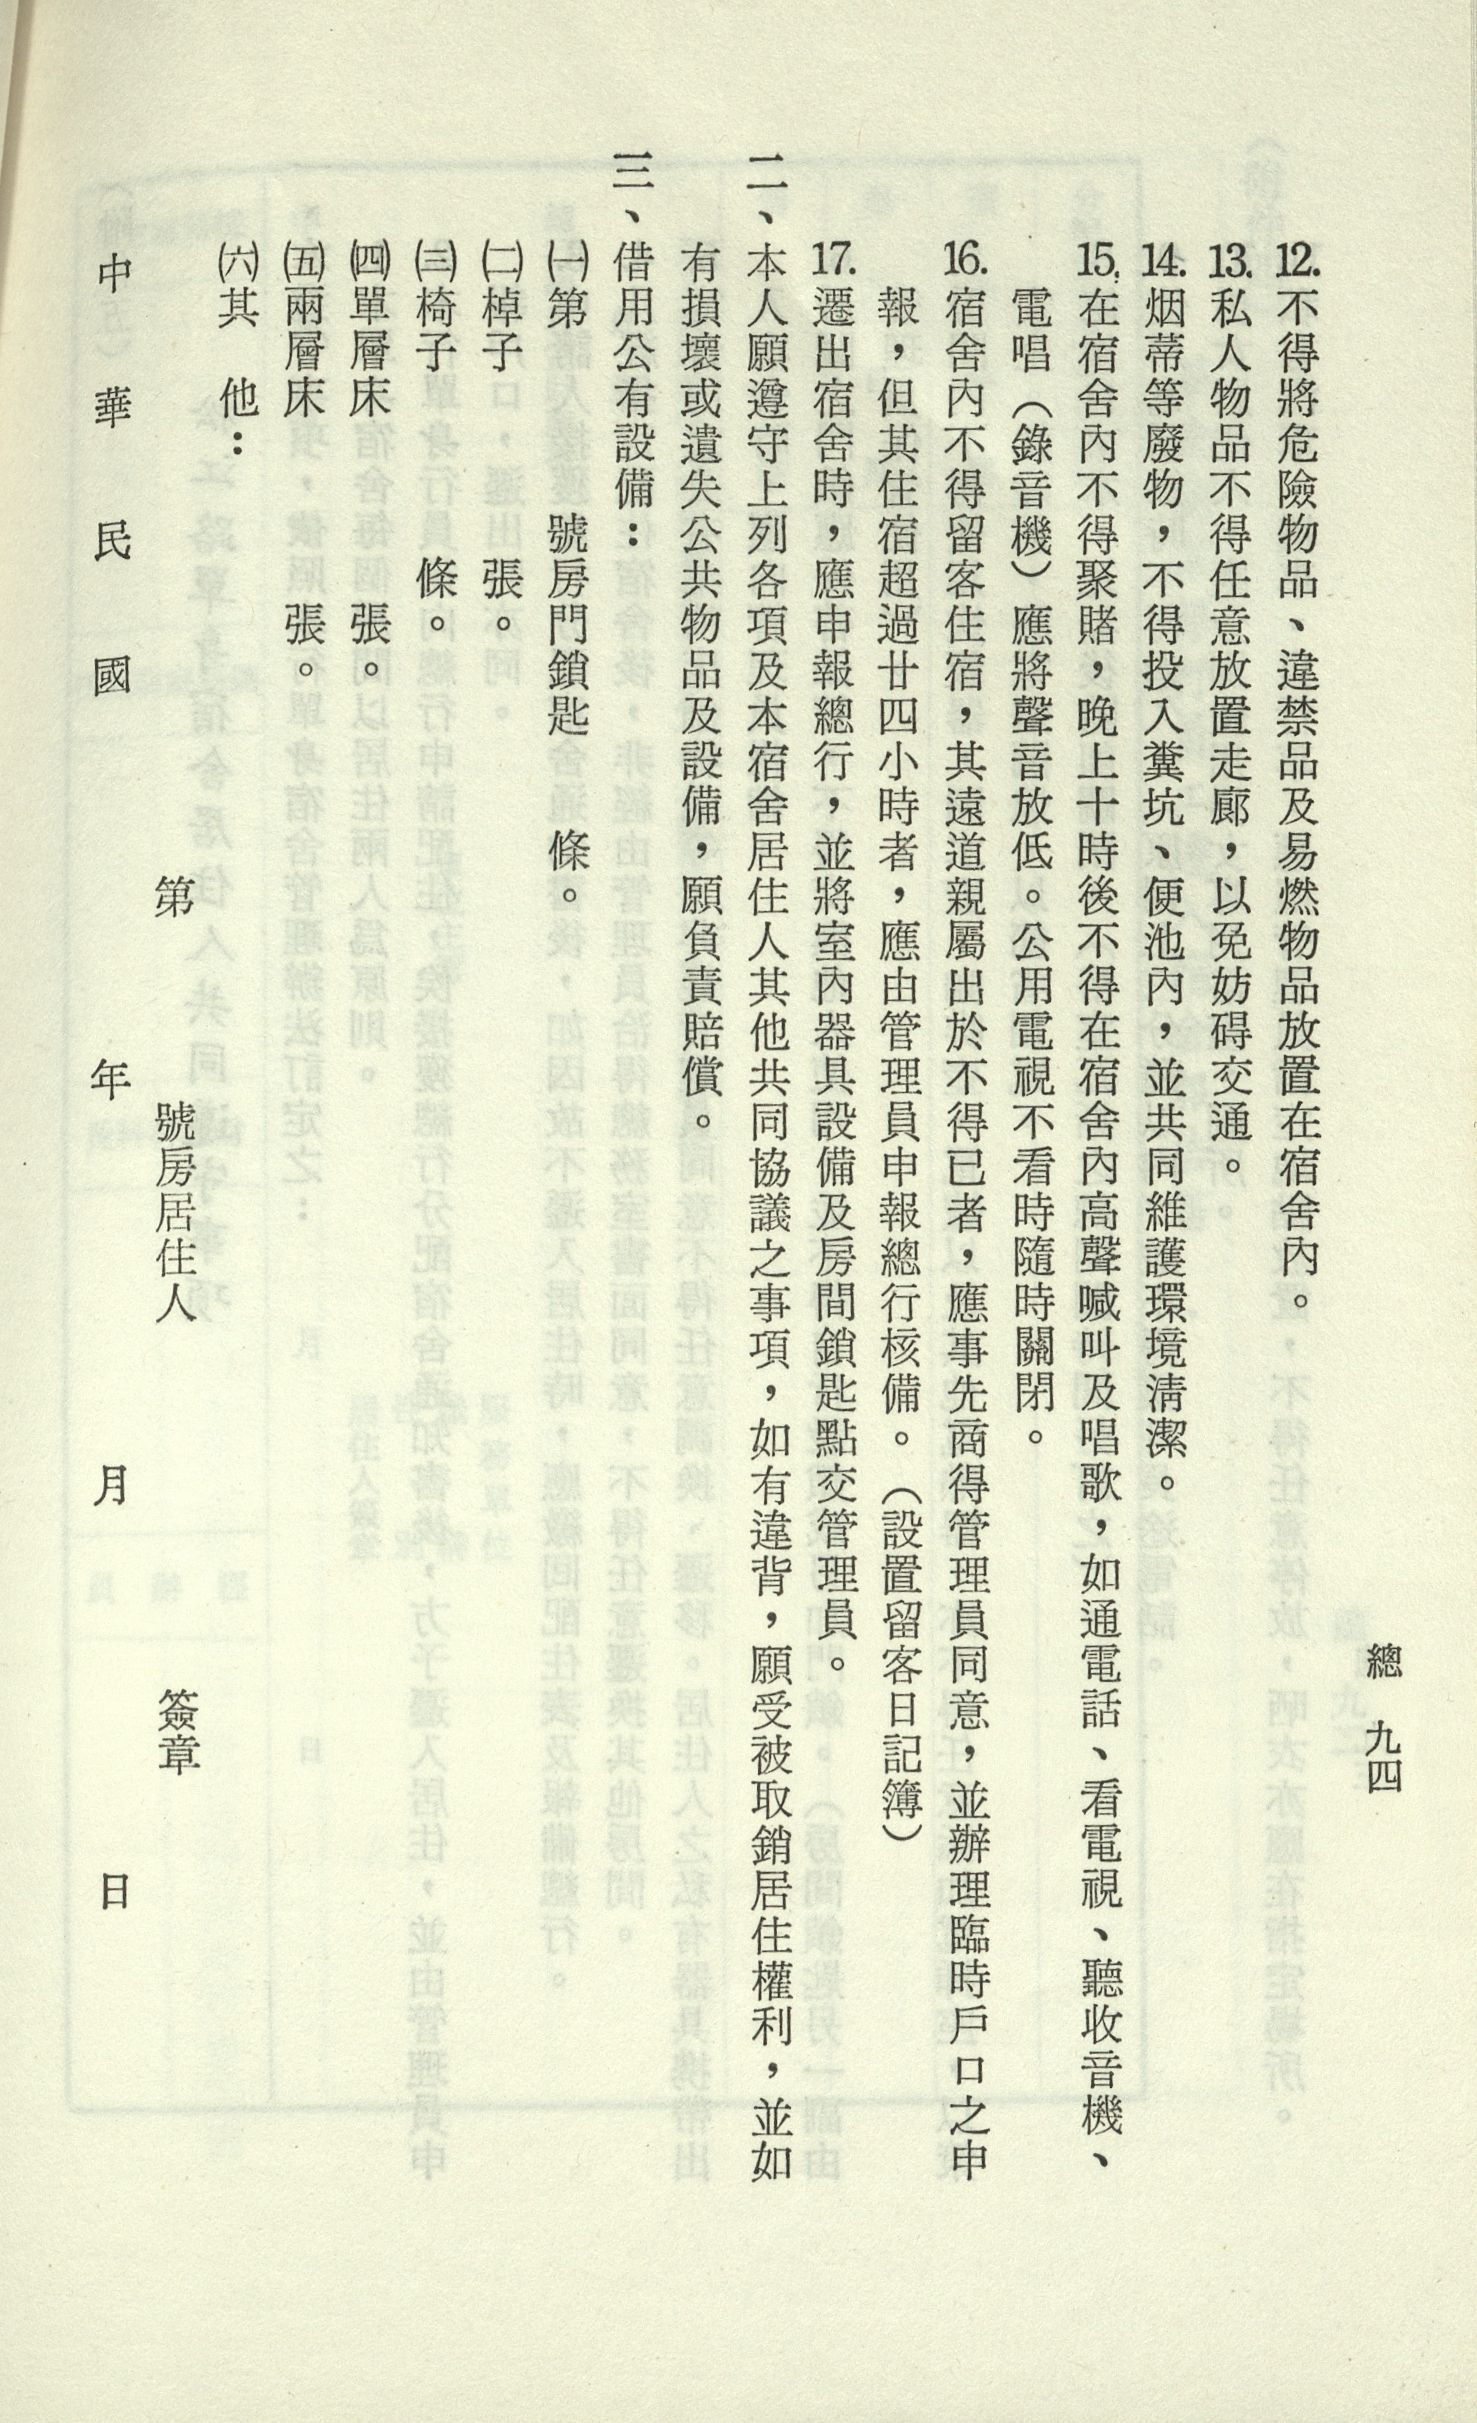 總　九四
12.不得將危險物品、違禁品及易燃物品放置在宿舍內。
13.私人物品不得任意放置走廊，以免妨碍交通。
14.烟蒂等廢物，不得投入糞坑、便池內，並共同維護環境清潔。
15.在宿舍內不得聚賭，晚上十時後不得在宿舍內高聲喊叫及唱歌，如通電話、看電視、聽收音機、
電唱（錄音機）應將聲音放低。公用電視不看時隨時關閉。
16.宿舍內不得留客住宿，其遠道親屬出於不得已者，應事先商得管理員同意，並辦理臨時戶口之申
報，但其住宿超過廿四小時者，應由管理員申報總行核備。（設置留客日記簿）
17.遷出宿舍時，應申報總行，並將室內器具設備及房間鎖匙點交管理員。
二、本人願遵守上列各項及本宿舍居住人其他共同協議之事項，如有違背，願受被取銷居住權利，並如
有損壞或遺失公共物品及設備，願負責賠償。
三、借用公有設備：
㈠第　　　　號房門鎖匙　　條。
㈡棹子　　　　張。
㈢椅子　　　　條。
㈣單層床　　　　張。
㈤兩層床　　　　張。
㈥其　他：
第　　　　號房居住人　　　　　　　　簽章
中　華　民　國　　　　　　　　年　　　　　　　　月　　　　　　　　日